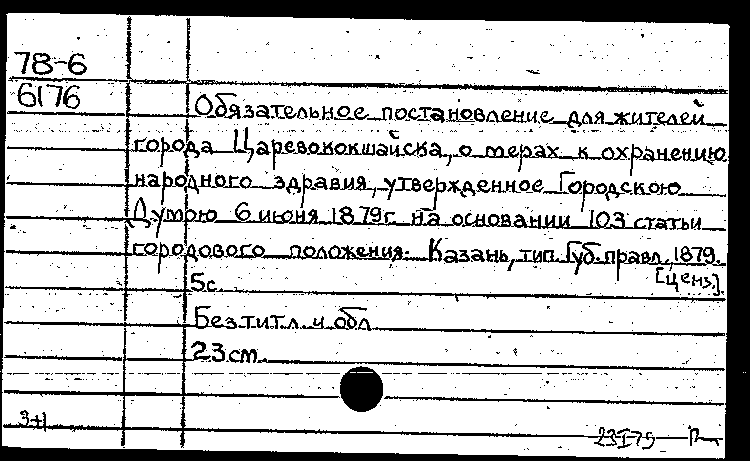 78-6
6176
Обязательное постановление для жителей
города Царевококшайска, о мерах к охранению
народного здравия, утвержденное Городскою
Думою 6 июня 1879г на основании 103 статьи
городового положения. Казань, тип. Губ. правл. 1879.
[ценз.].
5с.
Без тит. л. и обл
23см.
3+1
23 I 79